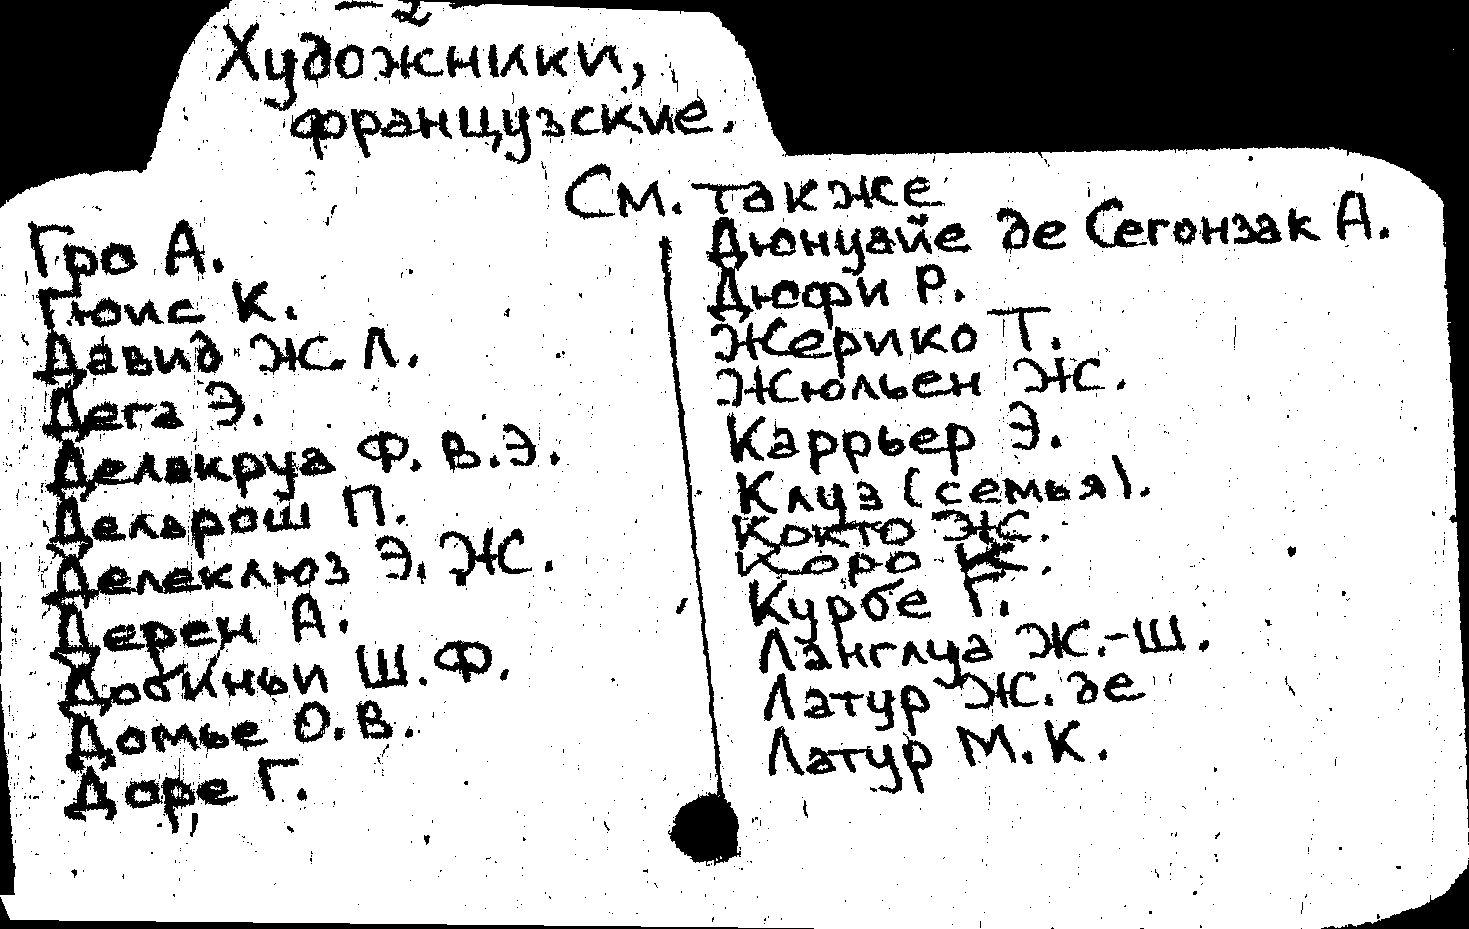 — 2 —
Художники,
французские.
См. также
Гро А.
Гюис К.
Давид Ж. Л.
Дега Э.
Делакруа Ф. В. Э.
Деларош П.
Делеклюз Э. Ж.
Дерен А.
Добиньи Ш. Ф.
Домье О. В.
Доре Г.
Дюнуайе де Сегонзак А.
Дюфи Р.
Жерико Т.
Жюльен Ж.
Каррьер Э.
Клуэ (семья).
Кокто Ж.
Коро К.
Курбе Г.
Ланглуа Ж.-Ш.
Латур Ж. де
Латур М. К.